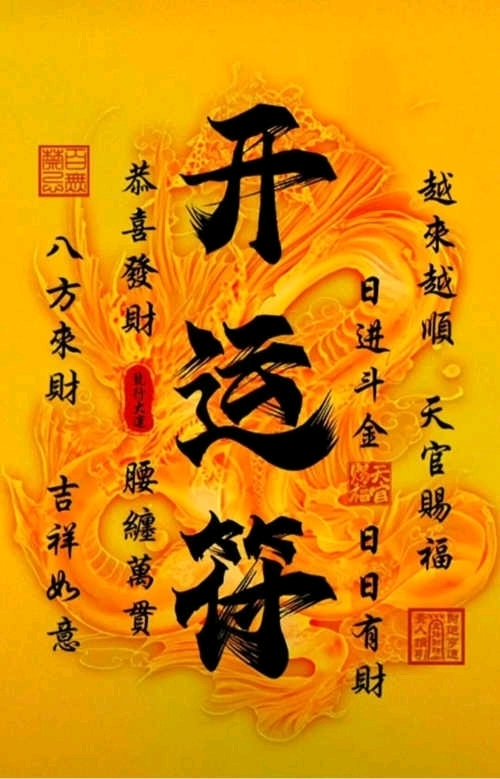 开运符
越來越順
天官賜福
日进斗金
日日有財
恭喜發財
腰纏萬貫
八方來財
吉祥如意
百無禁忌
天官賜福